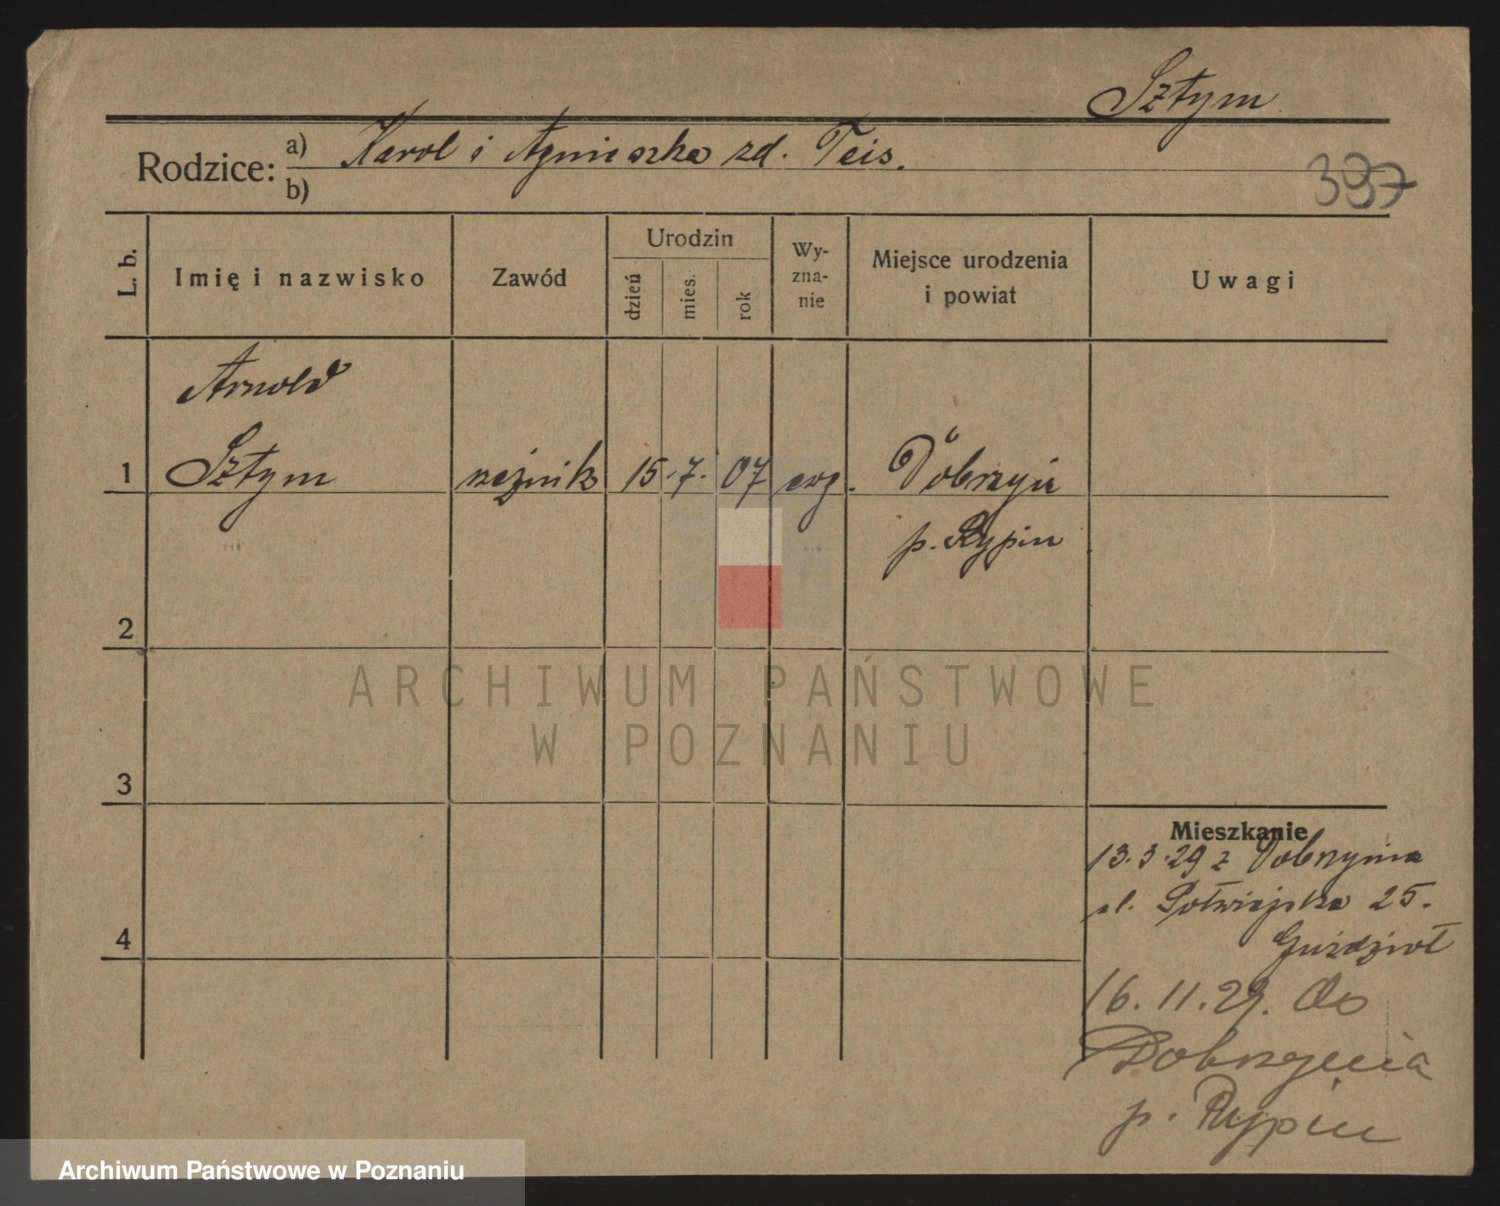 Sztym
Rodzice: a) Karol i Agnieszka zd. Teis.
b)
397
L. b.
Imię i nazwisko
Zawód
Urodzin
dzień
mies.
rok
Wy-
zna-
nie
Miejsce urodzenia
i powiat
Uwagi
Arnold
1 Sztym rzeźnik 15. 7. 07 ewg. Dobrzyń
p. Rypin
2
3
4
Mieszkanie
13.3.29 z Dobrzynia
ul. Półwiejska 25.
16. 11. 29. do
Dobrzynia
p. Rypin
ARCHIWUM PAŃSTWOWE
W POZNANIU
Archiwum Państwowe w Poznaniu